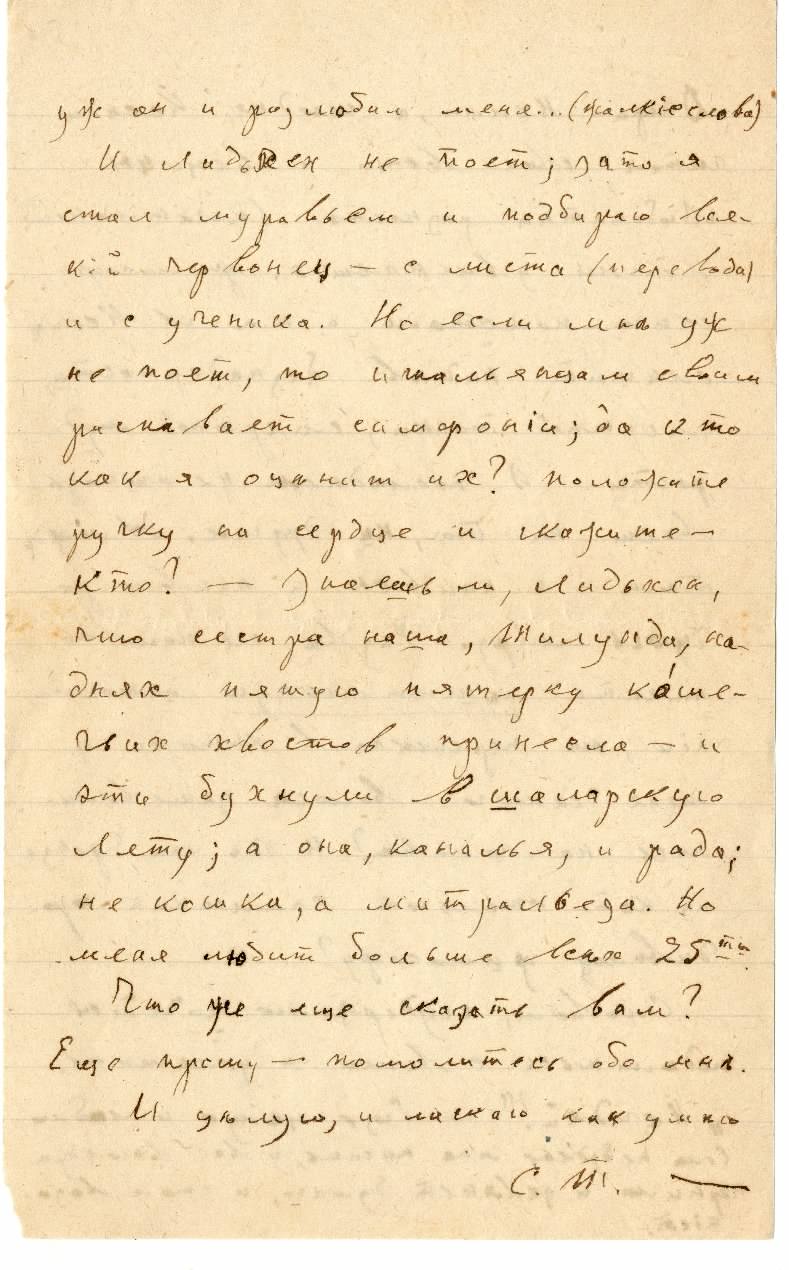 уж он и разлюбил меня... (жалкіе слова)
И Лидыхен не поет; зато я
стал муравьем и подбираю вся-
кій червонец — с листа (перевода)
и с ученика. Но если мнѣ уж
не поет, то итальянцам своим
распѣвает симфоніи; да кто
как я оцѣнит их? положите
ручку на сердце и скажите —
кто? — Знаешь ли, Лидыхен,
что сестра наша, Жилунда, на-
днях пятую пятерку коше-
чьих хвостов принесла — и
эти бухнули в шаларскую
Лету; а она, каналья, и рада;
не кошка, а митральеза. Но
меня любит больше всѣх 25ти.
Что же еще сказать вам?
Еще прошу — помолитесь обо мнѣ.
И цѣлую, и ласкаю как умѣю
С. Т. —